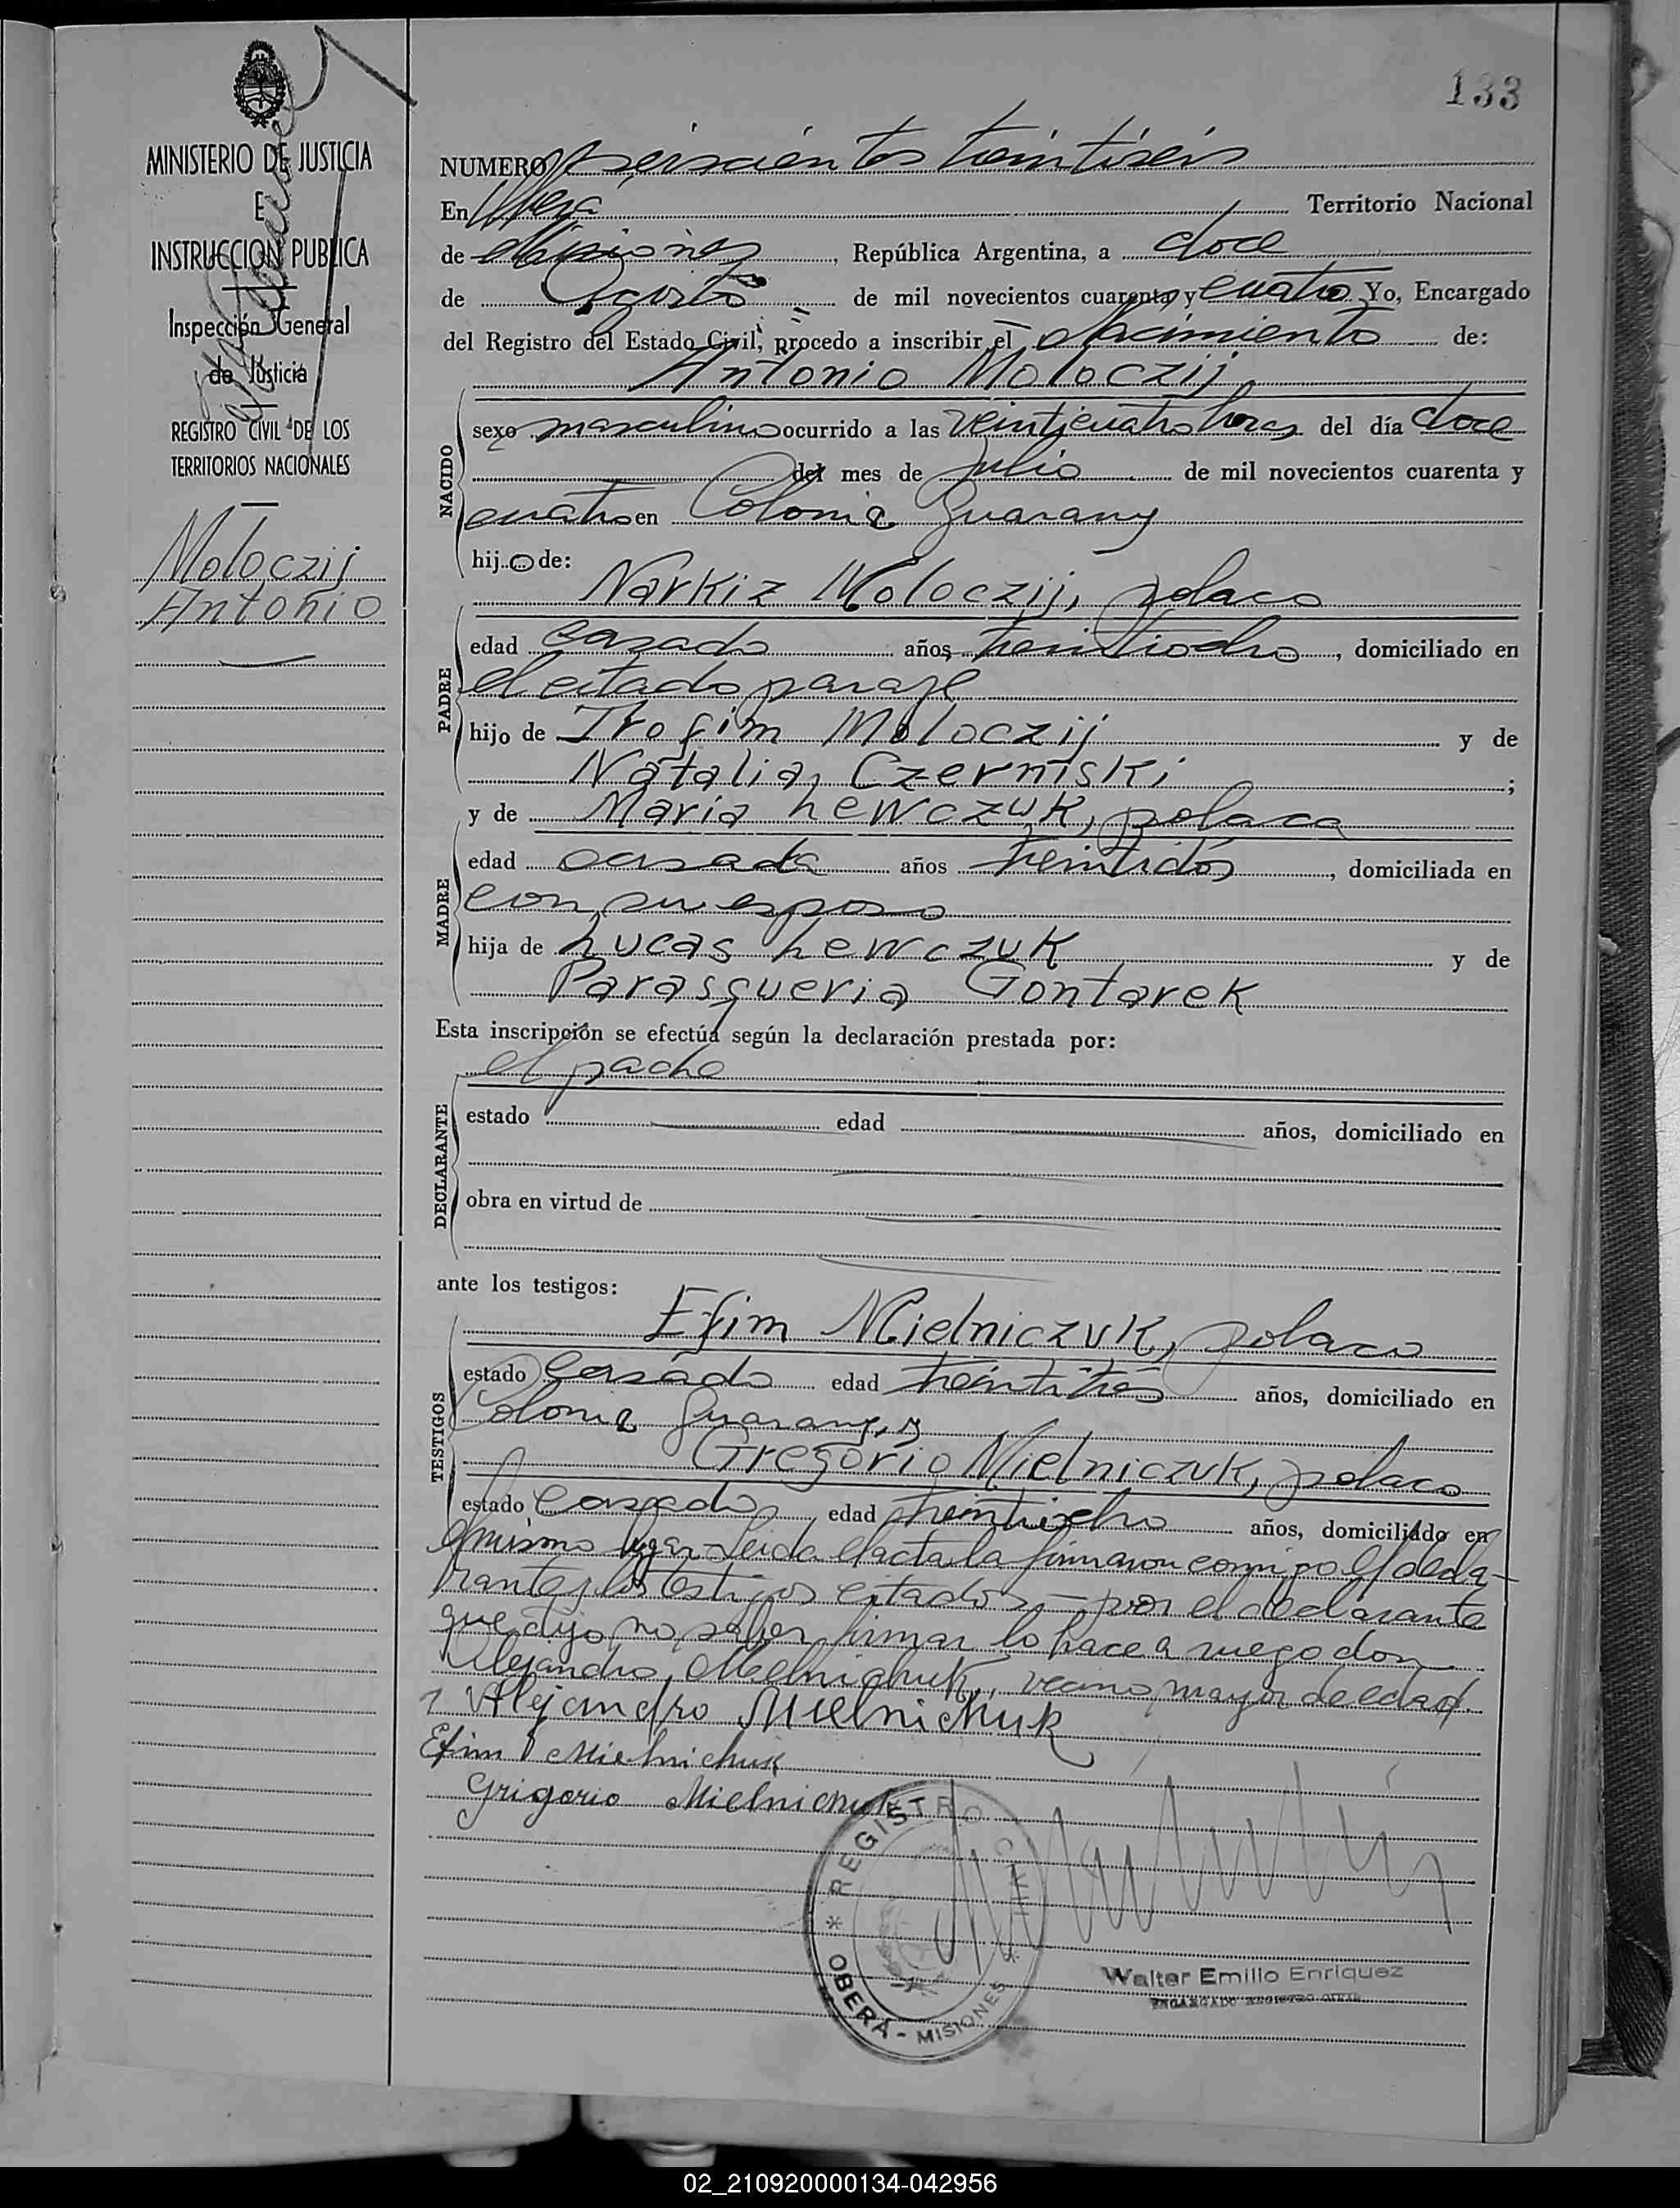 133
MINISTERIO DE JUSTICIA
E
INSTRUCCION PUBLICA
Inspección General
de Justicia
REGISTRO CIVIL DE LOS
TERRITORIOS NACIONALES
Moloczij
Antonio
NUMERO seiscientos treintiséis
En Obera Territorio Nacional
de Misiones, República Argentina, a doce
de Agosto de mil novecientos cuarenta y cuatro Yo, Encargado
del Registro del Estado Civil, procedo a inscribir el Nacimiento de:
Antonio Moloczij
NACIDO
sexo masculino ocurrido a las veinticuatro horas del día doce
del mes de julio de mil novecientos cuarenta y
cuatro en Colonia Guarany
hijo de:
Narkiz Moloczij, polaco
PADRE
edad casado años treintiocho, domiciliado en
el citado paraje
hijo de Trofim Moloczij y de
Natalia Czerniski;
y de Maria Lewczuk, polaca
MADRE
edad casada años treintidós, domiciliada en
con su esposo
hija de Lucas Lewczuk y de
Parasqueria Gontarek
Esta inscripción se efectúa según la declaración prestada por:
el padre
DECLARANTE
estado edad años, domiciliado en
obra en virtud de
ante los testigos:
TESTIGOS
Efim Mielniczuk, polaco
estado casado edad treintitrés años, domiciliado en
Colonia Guarany, y
Gregorio Mielniczuk, polaco
estado casado, edad treintiocho años, domiciliado en
el mismo lugar. Leida el acta la firmaron conmigo el decla-
rante y los testigos citados, - por el declarante
que dijo no saber firmar lo hace a ruego don
Alejandro Mielnichuk, vecino mayor de edad.
Alejandro Mielnichuk
Efim Mielnichuk
Grigorio Mielnichuk
REGISTRO CIVIL
OBERÁ - MISIONES
Walter Emilio Enriquez
ENCARGADO REGISTRO CIVIL
02_210920000134-042956